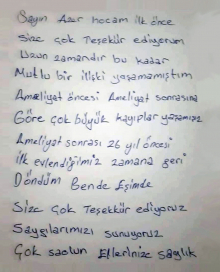 Sayın Azur hocam ilk önce
Size çok Teşekür ediyorum
Uzun zamandır bu kadar
Mutlu bir ilişki yaşamamıştım
Ameliyat öncesi Ameliyat sonrasına
Göre çok büyük kayıplar yaşamışız
Ameliyat sonrası 26 yıl öncesi
ilk evlendiğimiz zamana geri
Döndüm Bende Eşimde
Size çok Teşekkür ediyoruz
Saygılarımızı sunuyoruz
Çok saolun Ellerinize sağlık